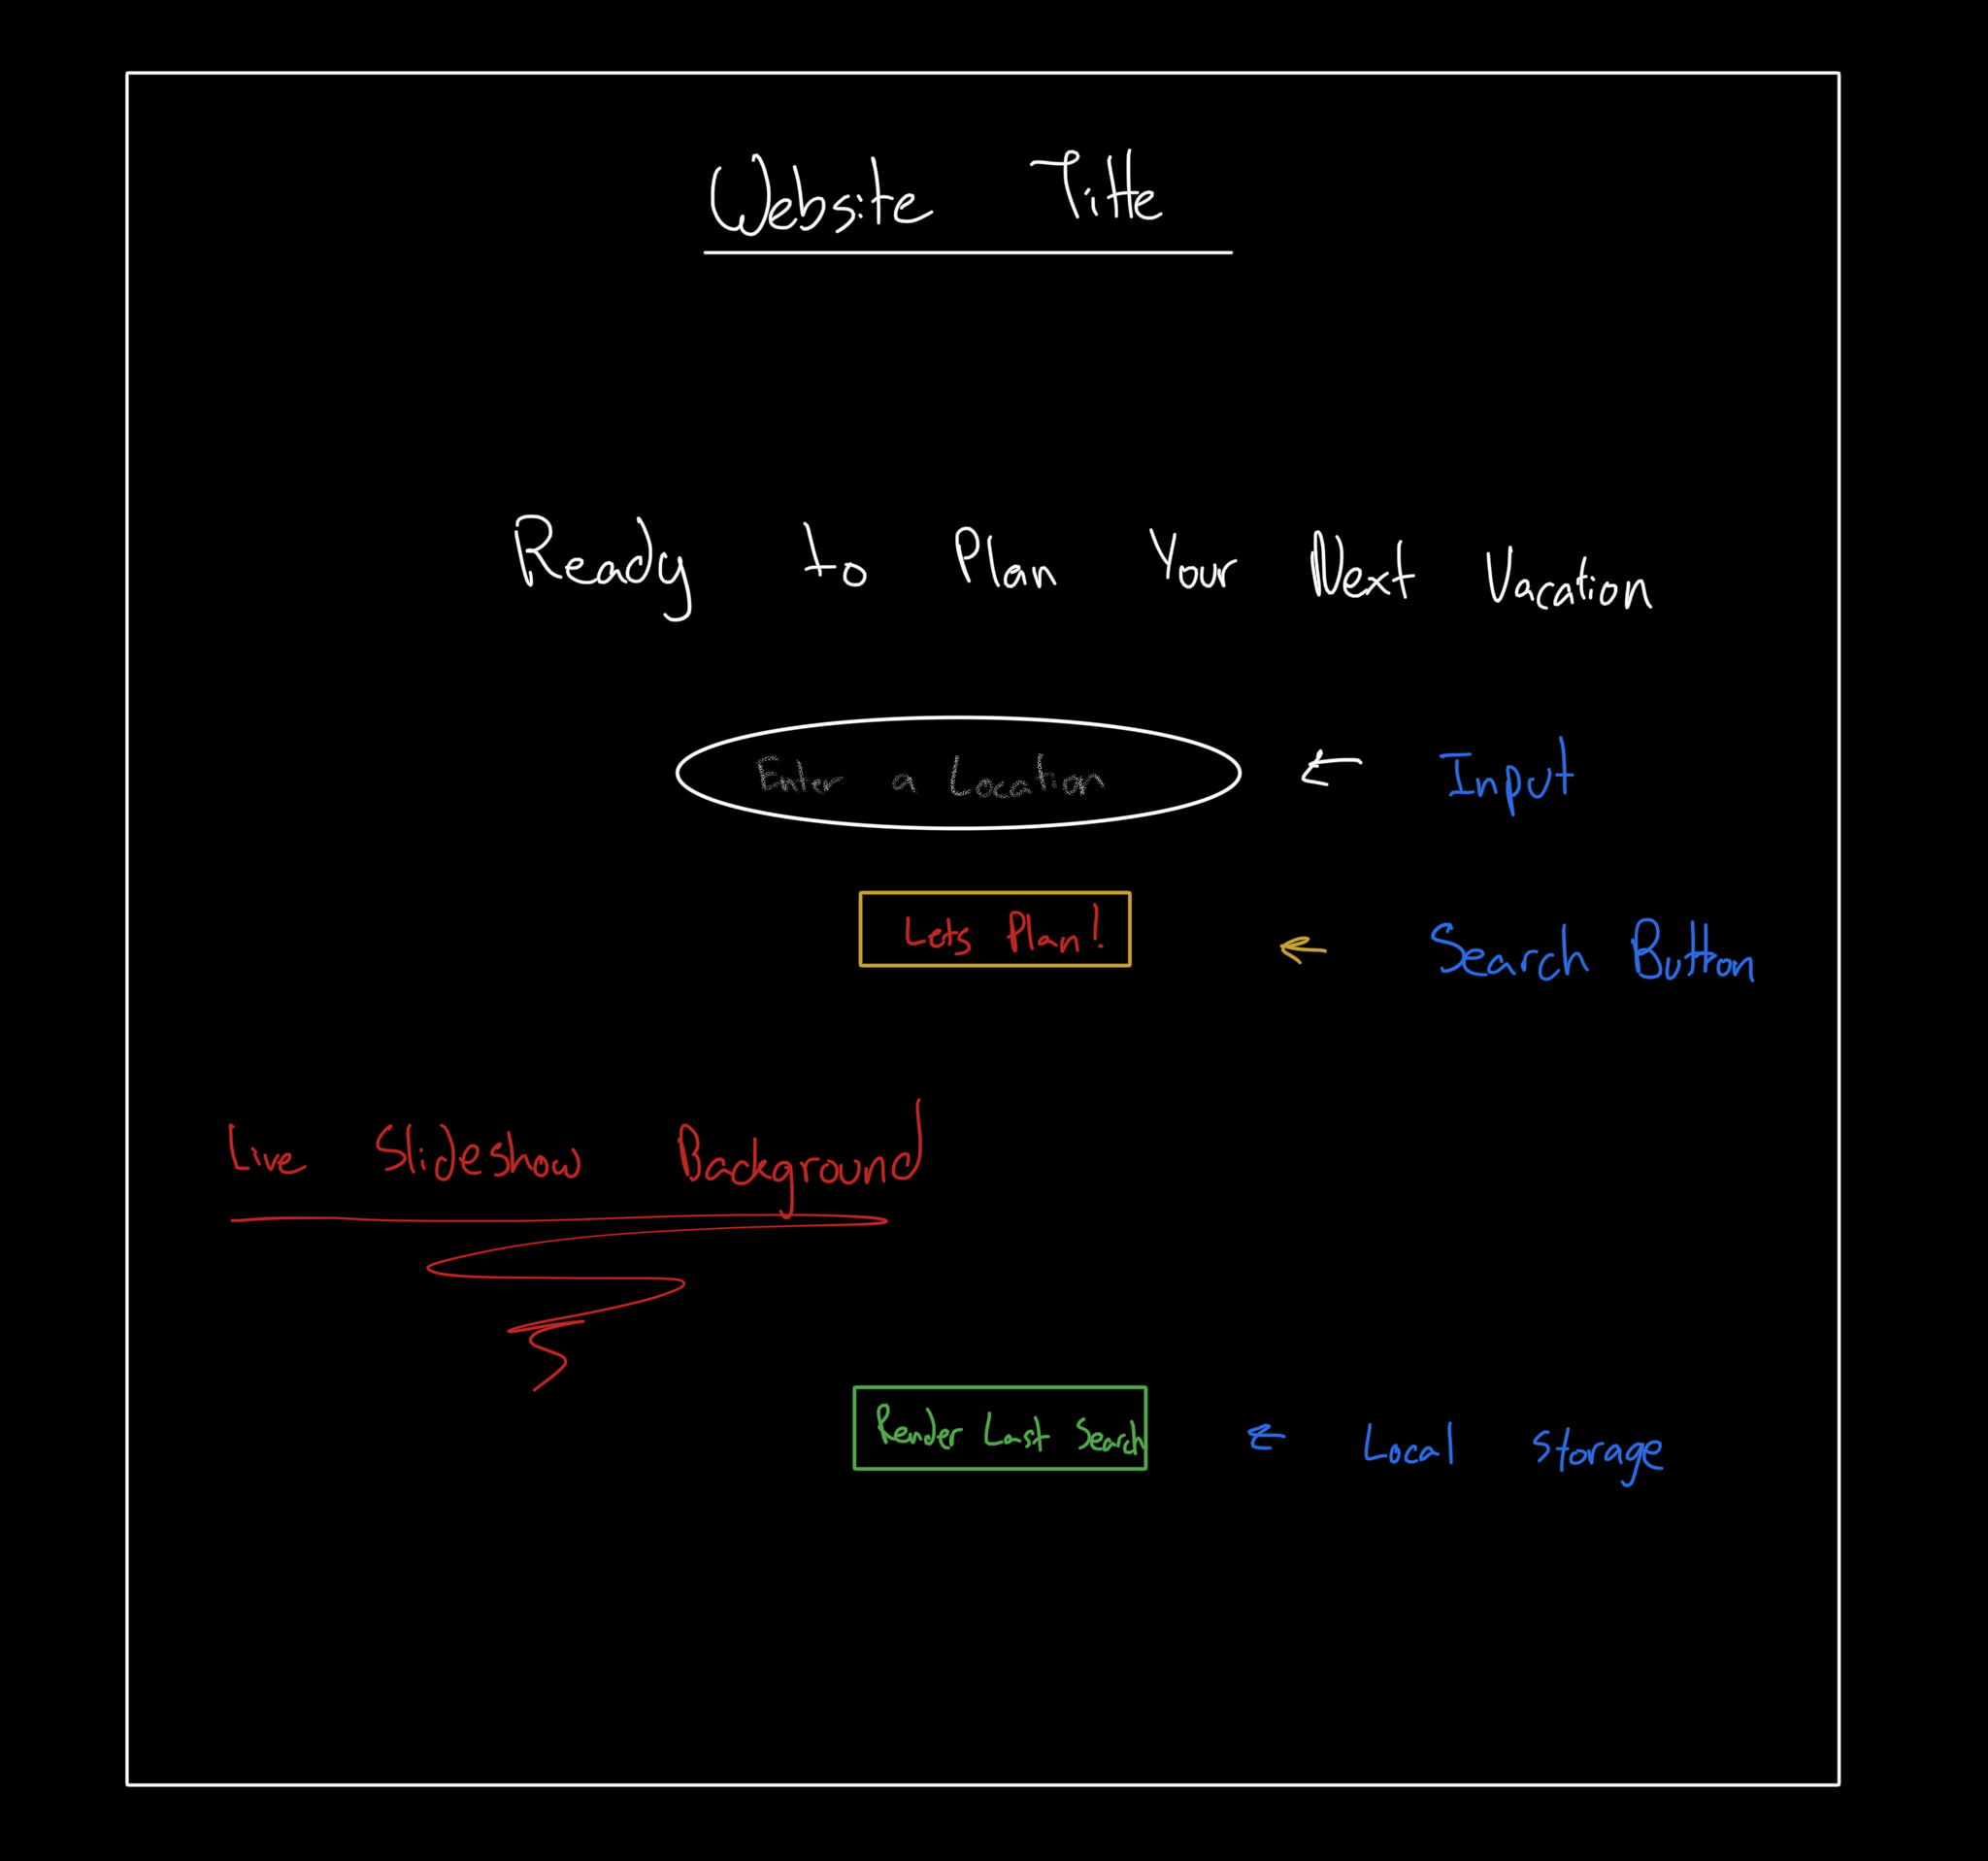 Website Title
Ready to Plan Your Next Vacation
Enter a Location
Input
Lets Plan!
Search Button
Live Slideshow Background
Render Last Search
Local Storage